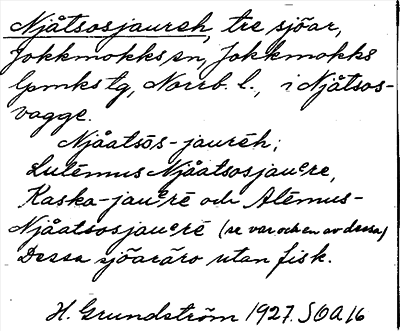 Njåtsosjaureh, tre sjöar,
Jokkmokks sn, Jokkmokks
lpmks tg, Norrb. l., i Njåtsos-
vagge.
Njåatsōs-jauréh;
Lulēmus Njåatsosjauᵉre,
Kaska-jauᵉrē och Alēmus-
Njåatsosjauᵉrē (se var och en av dessa)
Dessa sjöar äro utan fisk.
H. Grundström 1927. SOA 16